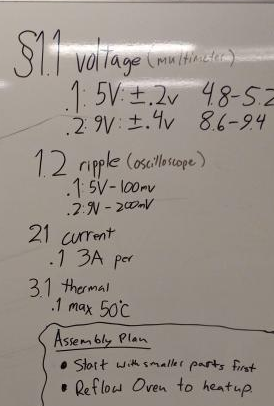 §1.1 voltage (multimeter)
.1: 5V: ±.2v 4.8-5.2
.2: 9V: ±.4v 8.6-9.4
1.2 ripple (oscilloscope)
.1: 5V-100mv
.2: 9V-200mV
2.1 current
.1 3A per
3.1 thermal
.1 max 50°C
Assembly Plan
• Start with smaller parts first
• Reflow Oven to heatup